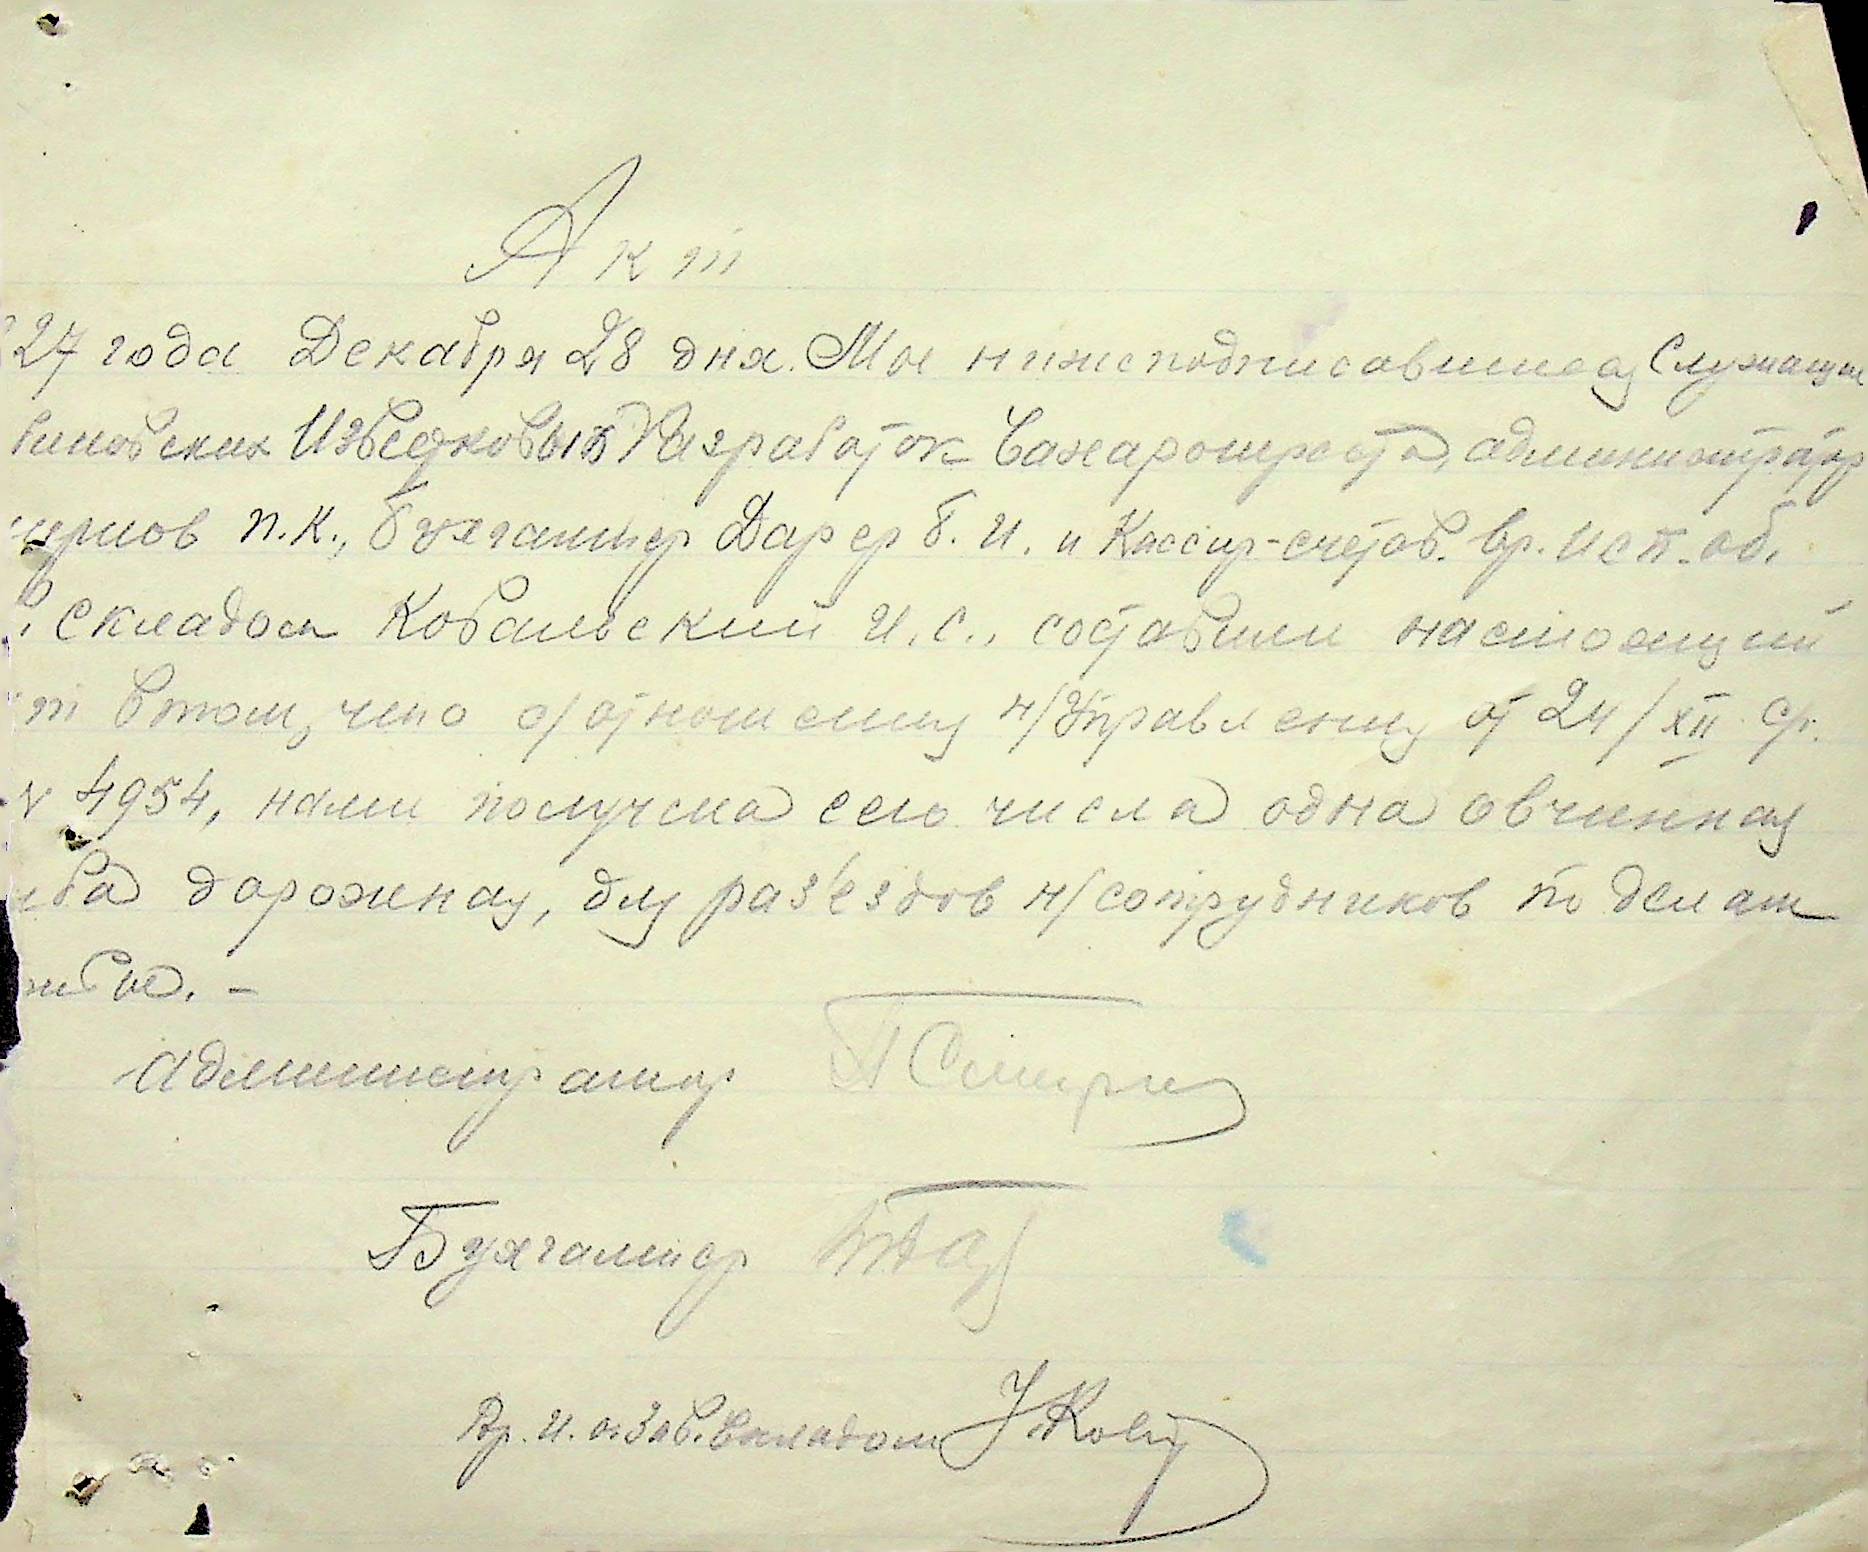 Акт
27 года Декабря 28 дня. Мы нижеподписавшиеся Служащие
биновских Известковых Разработок Сахаротреста, администратор
ирнов П.К., бухгалтер Дарер Б.И. и Кассир-счетов. вр. исп. об.
складом Ковальский И.С., составили настоящий
т в том, что с/отношению н/Управлению от 24/XII с/г.
№ 4954, нами получена сего числа одна овчинная
уба дорожная, для раз'ездов н/сотрудников по делам
жбы. -
Администратор П Смирн
Бухгалтер БДар
Вр. И. о. Зав. Складом И Ков